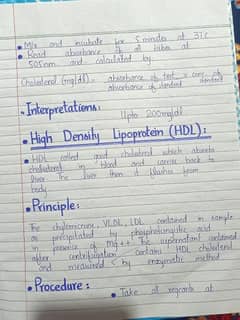 • Mix and incubate for 5 minutes at 37 C
• Read absorbance of all tubes at
505nm and calculated by
Cholesterol (mg/dl) = absorbance of test x conc of
absorbance of standard standard
• Interpretations:
Upto 200mg/dl
• High Density Lipoprotein (HDL):
• HDL called good cholesterol which absorbs
cholesterol in blood and carries back to
liver The liver then it flushes from
body
• Principle:
The chylomicrons, VLDL, LDL contained in sample
are precipitated by phosphotungstic acid
in presence of Mg++. The supernatant obtained
after centrifugation contains HDL cholesterol
and measured by enzymatic method
• Procedure:
• Take all reagents at